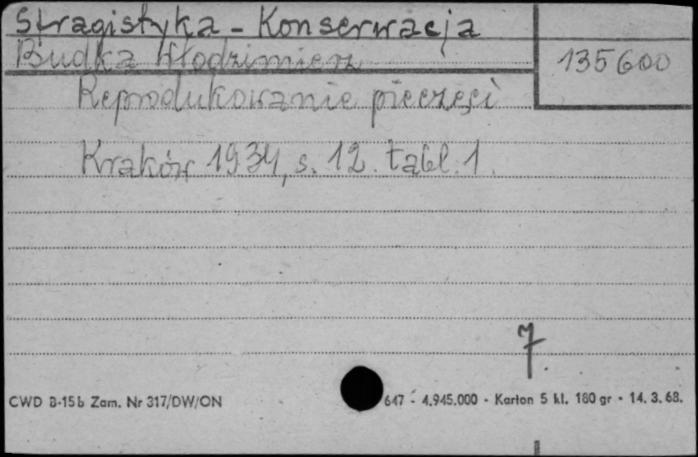 Sfragistyka - Konserwacja
Budka Włodzimierz
135600
Reprodukowanie pieczęci
Kraków 1934, s. 12. tabl. 1.
7
CWD B-15b Zam. Nr 317/DW/ON
647 - 4.945.000 - Karton 5 kl. 180 gr - 14. 3. 68.